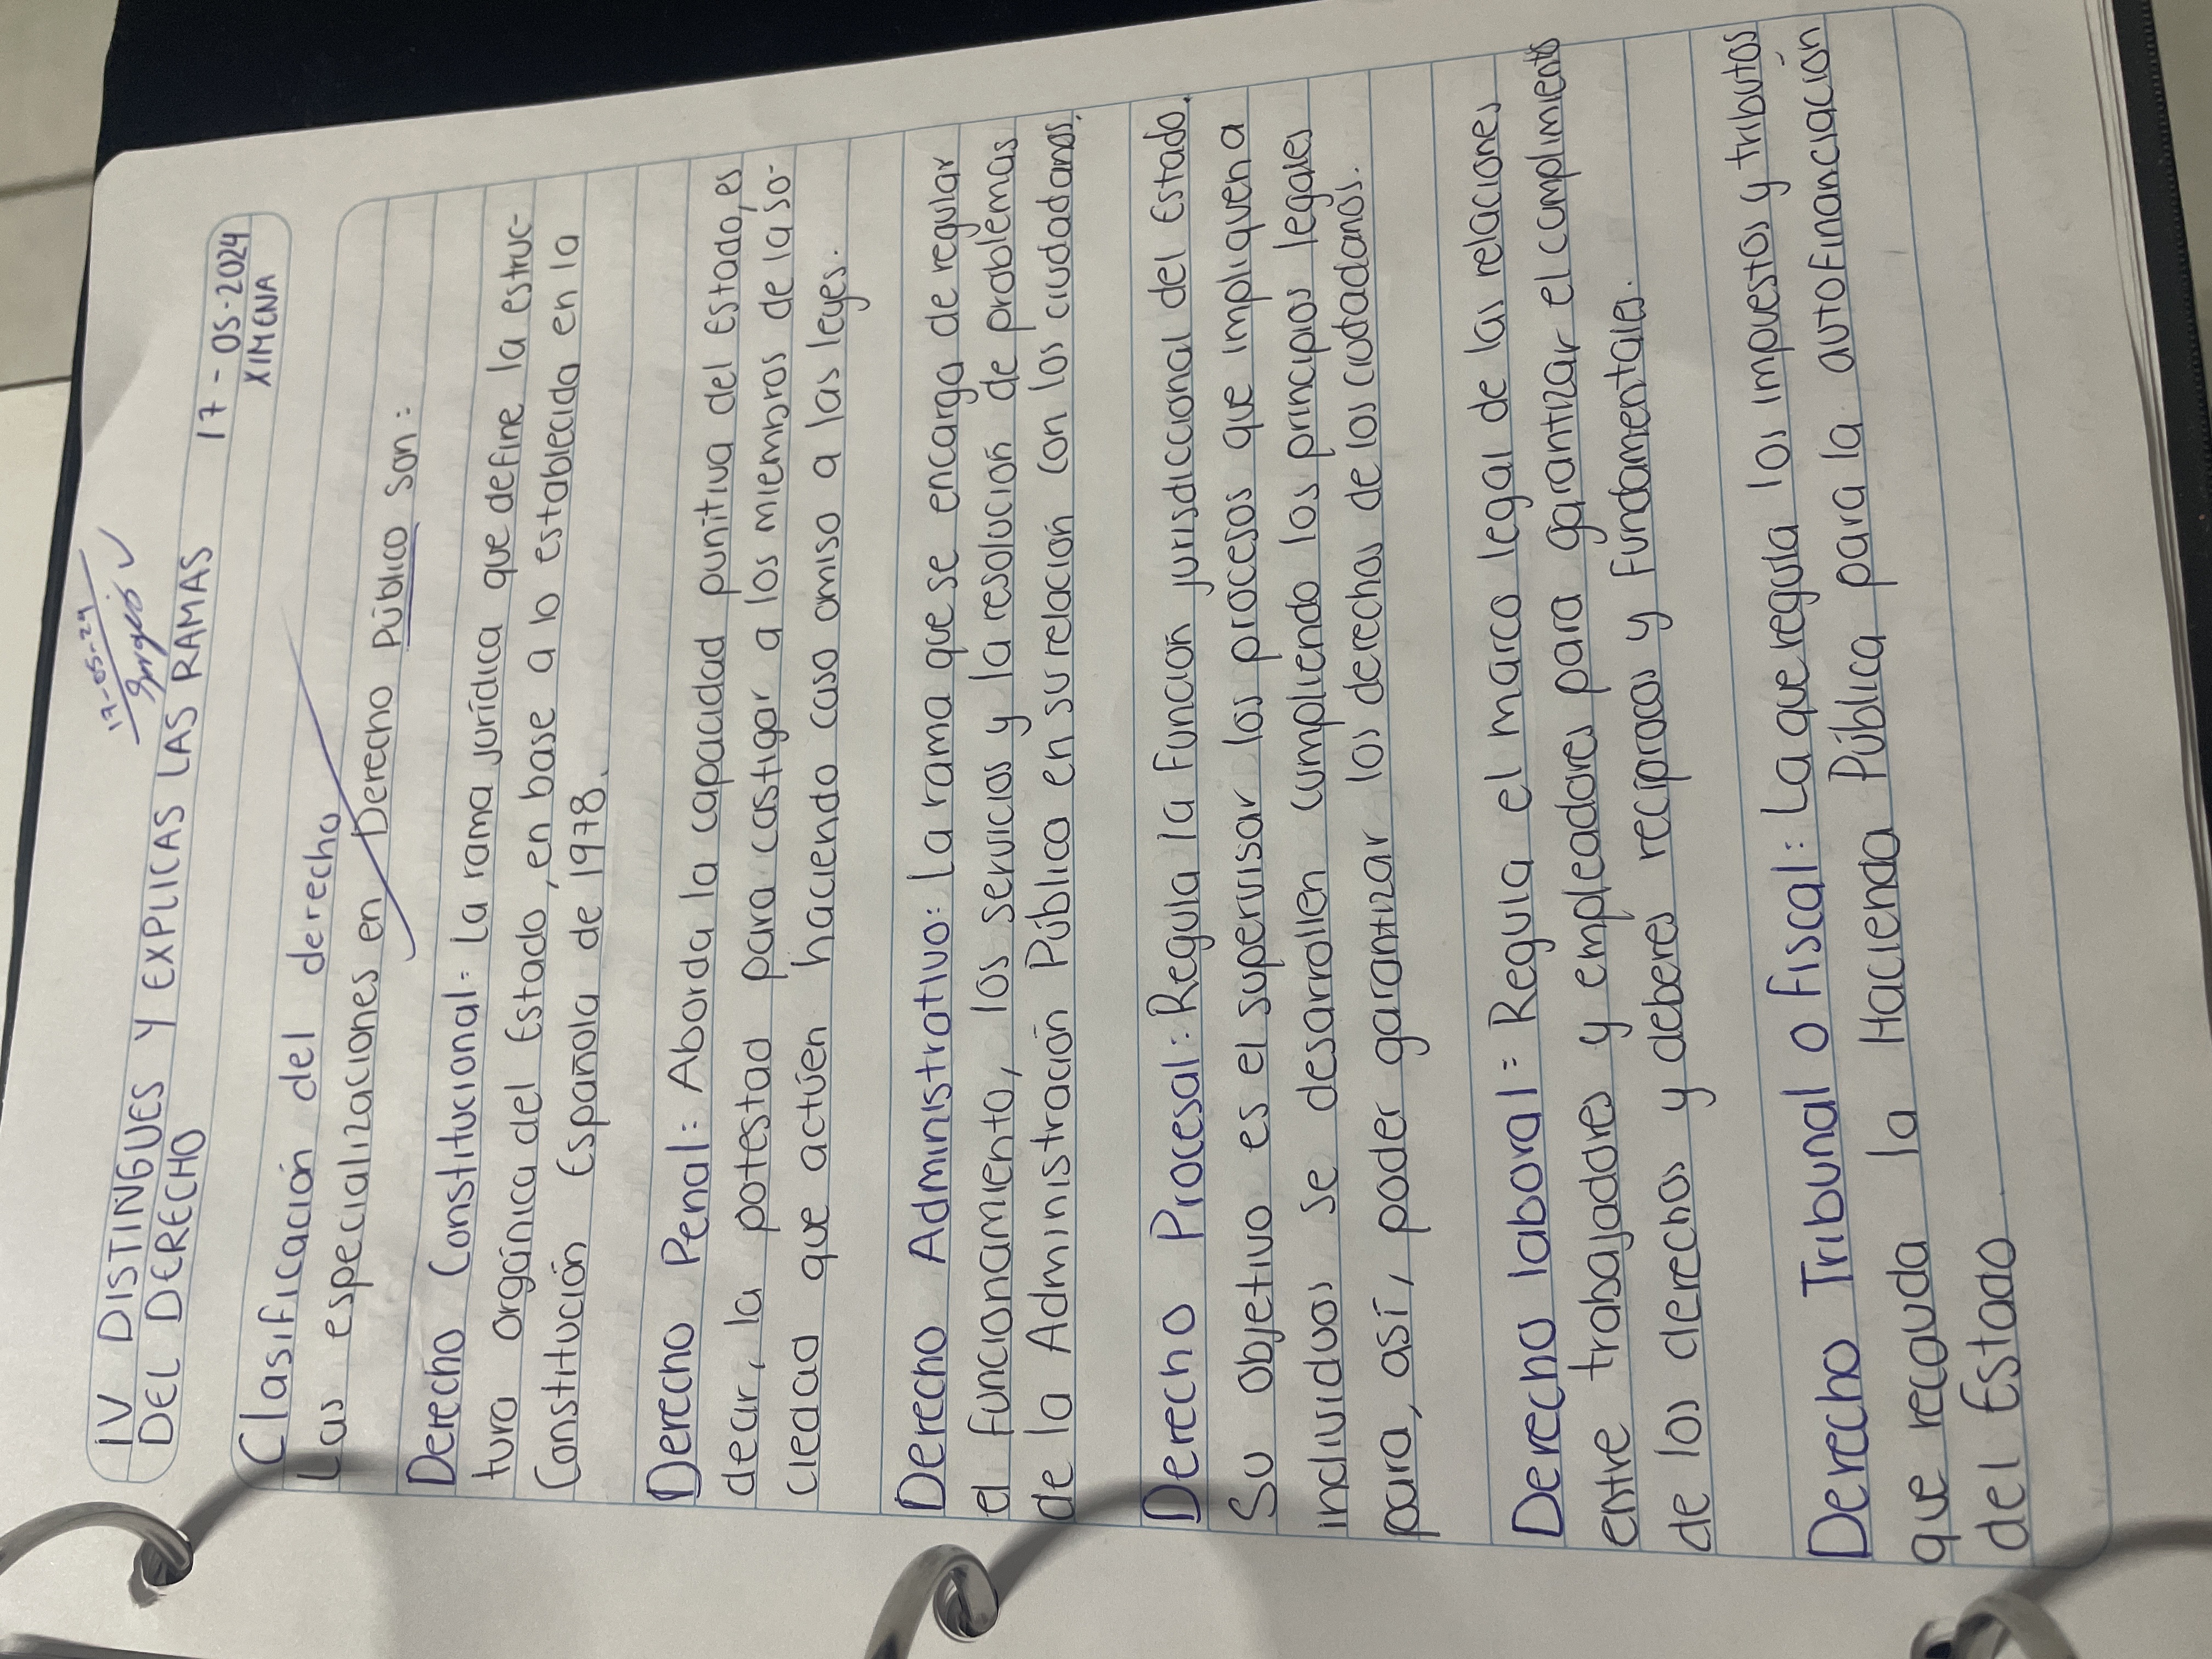 17-05-24
IV DISTINGUES Y EXPLICAS LAS RAMAS 17-05-2024
DEL DERECHO XIMENA
Clasificación del derecho
Las especializaciones en Derecho Público son:
Derecho Constitucional: La rama jurídica que define la estruc-
tura orgánica del Estado, en base a lo establecido en la
Constitución Española de 1978.
Derecho Penal: Aborda la capacidad punitiva del Estado, es
decir, la potestad para castigar a los miembros de la so-
ciedad que actúen haciendo caso omiso a las leyes.
Derecho Administrativo: La rama que se encarga de regular
el funcionamiento, los servicios y la resolución de problemas
de la Administración Pública en su relación con los ciudadanos.
Derecho Procesal: Regula la Función jurisdiccional del Estado.
Su objetivo es el supervisar los procesos que impliquen a
individuos se desarrollen cumpliendo los principios legales
para, así, poder garantizar los derechos de los ciudadanos.
Derecho laboral: Regula el marco legal de las relaciones
entre trabajadores y empleadores para garantizar el cumplimiento
de los derechos y deberes recíprocos y fundamentales.
Derecho Tribunal o fiscal: La que regula los impuestos y tributos
que recauda la Hacienda Pública para la autofinanciación
del Estado